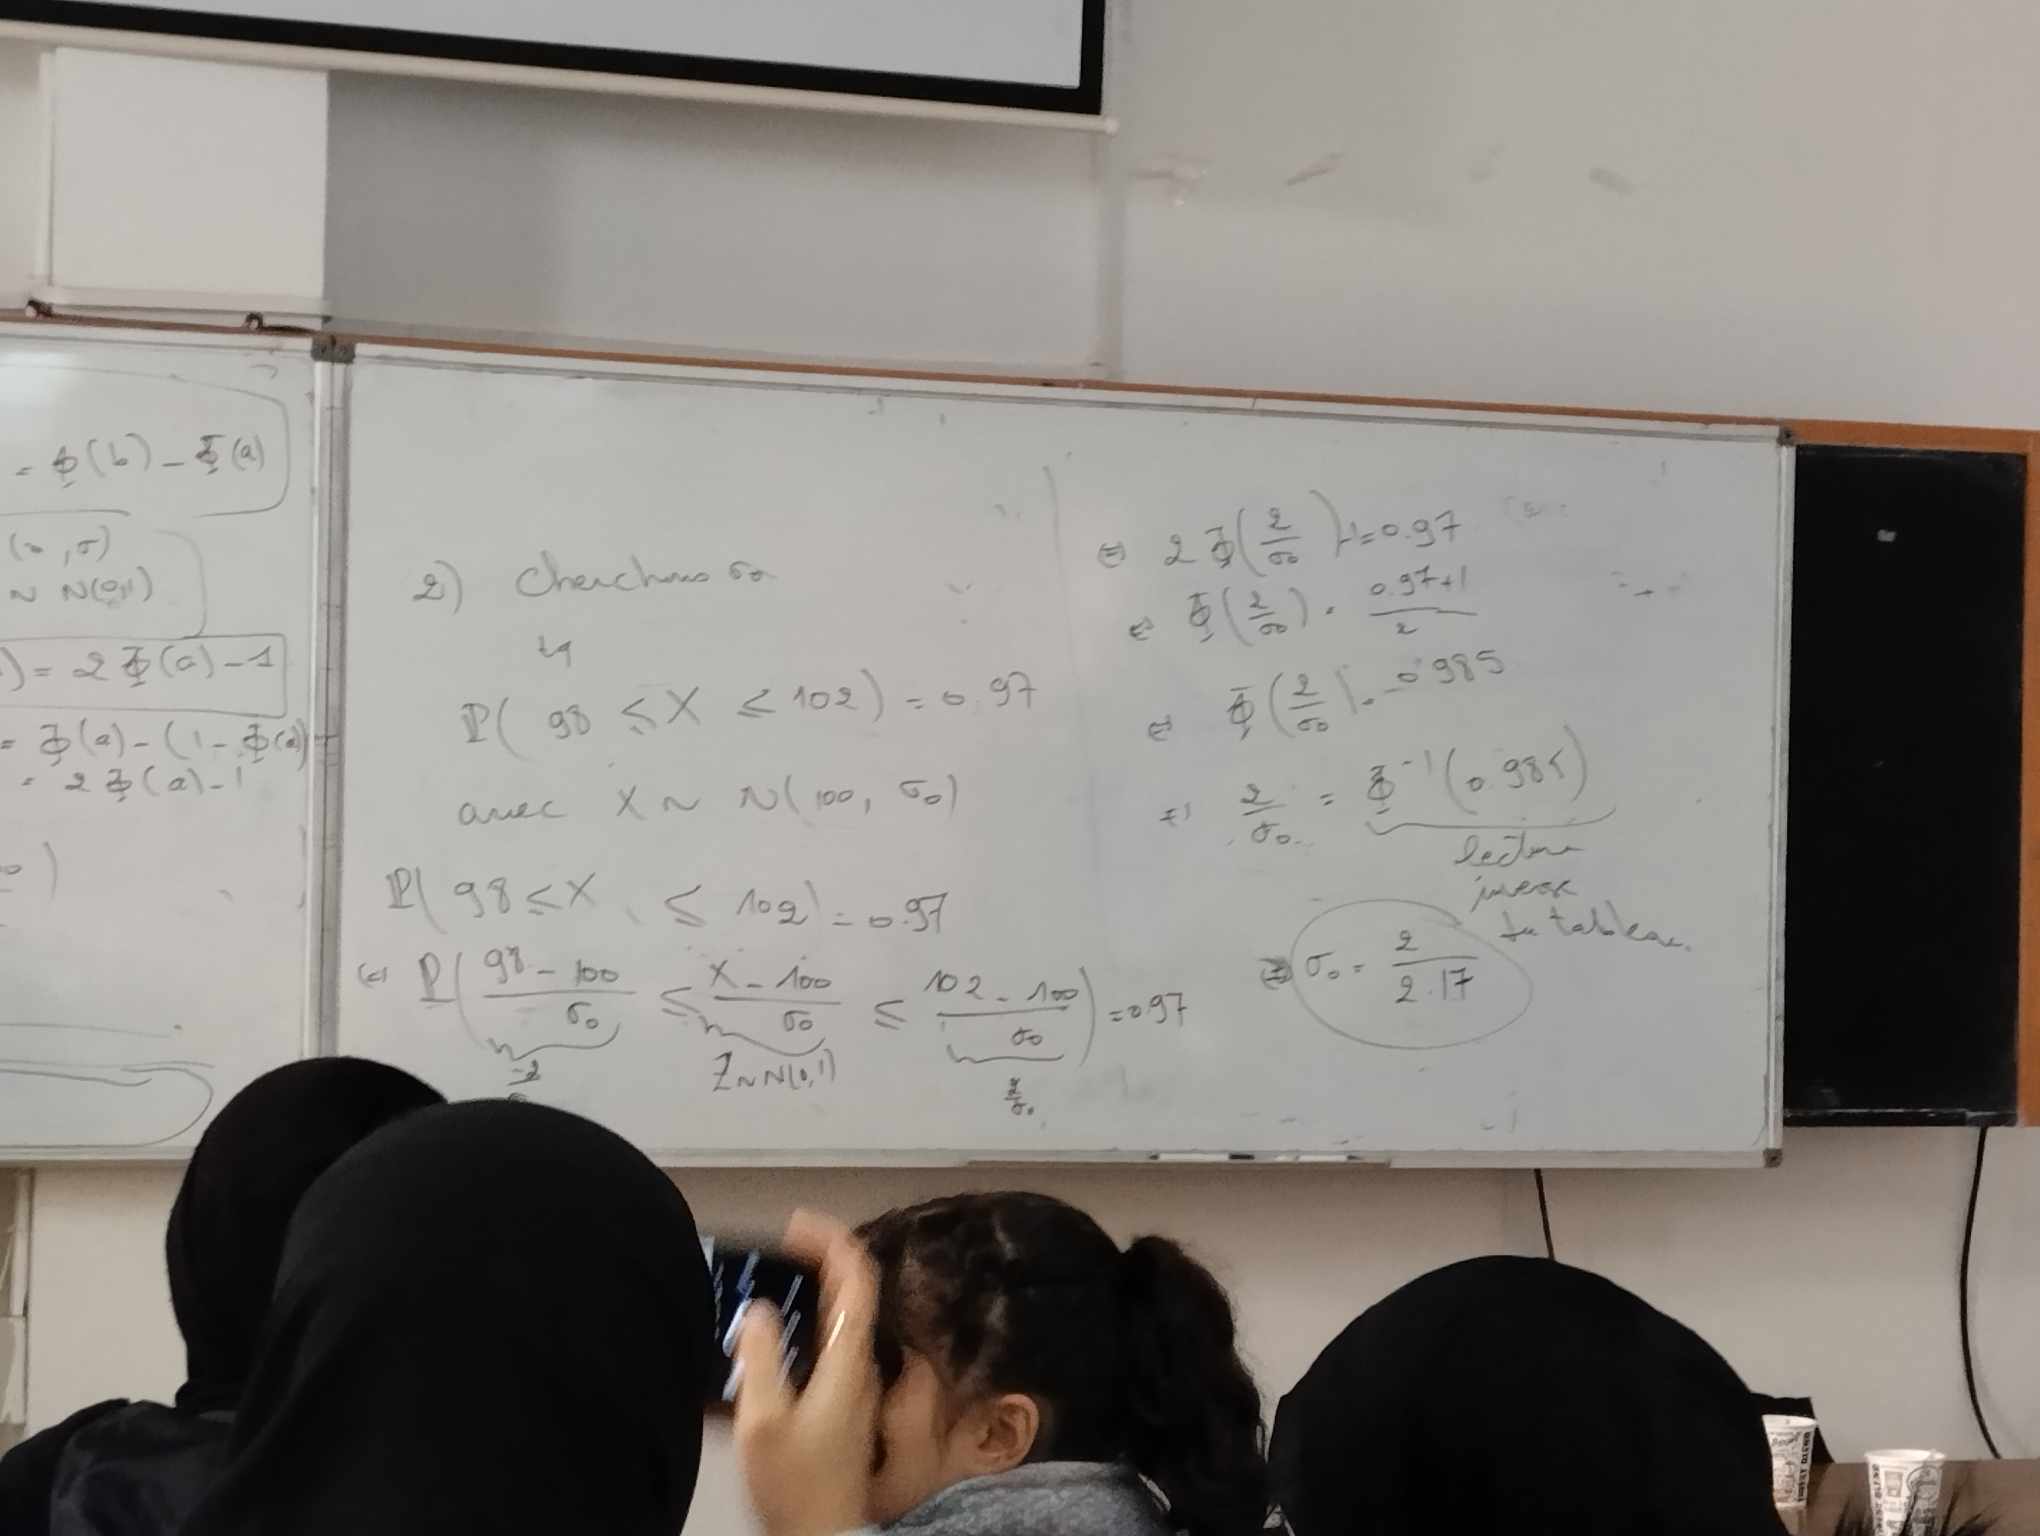 = Φ(b) - Φ(a)
, σ)
~ N(0,1)
) = 2Φ(a) - 1
= Φ(a) - (1 - Φ(a)
= 2Φ(a) - 1
2) Cherchons σ₀
tq
P( 98 ≤ X ≤ 102 ) = 0.97
avec X ~ N( 100, σ₀ )
P( 98 ≤ X ≤ 102 ) = 0.97
(⇔) P( (98 - 100)/σ₀ ≤ (X - 100)/σ₀ ≤ (102 - 100)/σ₀ ) = 0.97
-2 Z ~ N(0,1) 2/σ₀
⇔ 2Φ( 2/σ₀ ) - 1 = 0.97
⇔ Φ( 2/σ₀ ) = (0.97 + 1)/2
⇔ Φ( 2/σ₀ ) = 0.985
⇔ 2/σ₀ = Φ⁻¹( 0.985 )
lecture
inverse
du tableau.
⇔ σ₀ = 2/2.17